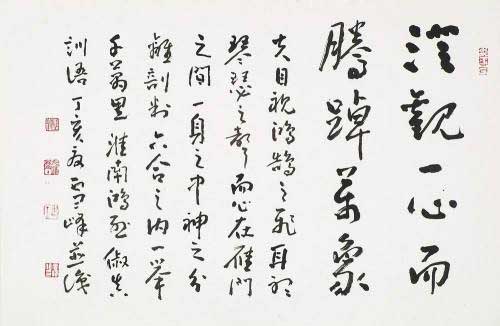 澄觀一心而
騰踔萬象
夫目視鴻鵠之飛耳聽
琴瑟之聲而心在雁門
之間一身之中神之分
離剖判六合之內一舉
千萬里淮南鴻烈俶真
訓語丁亥雪峰並識